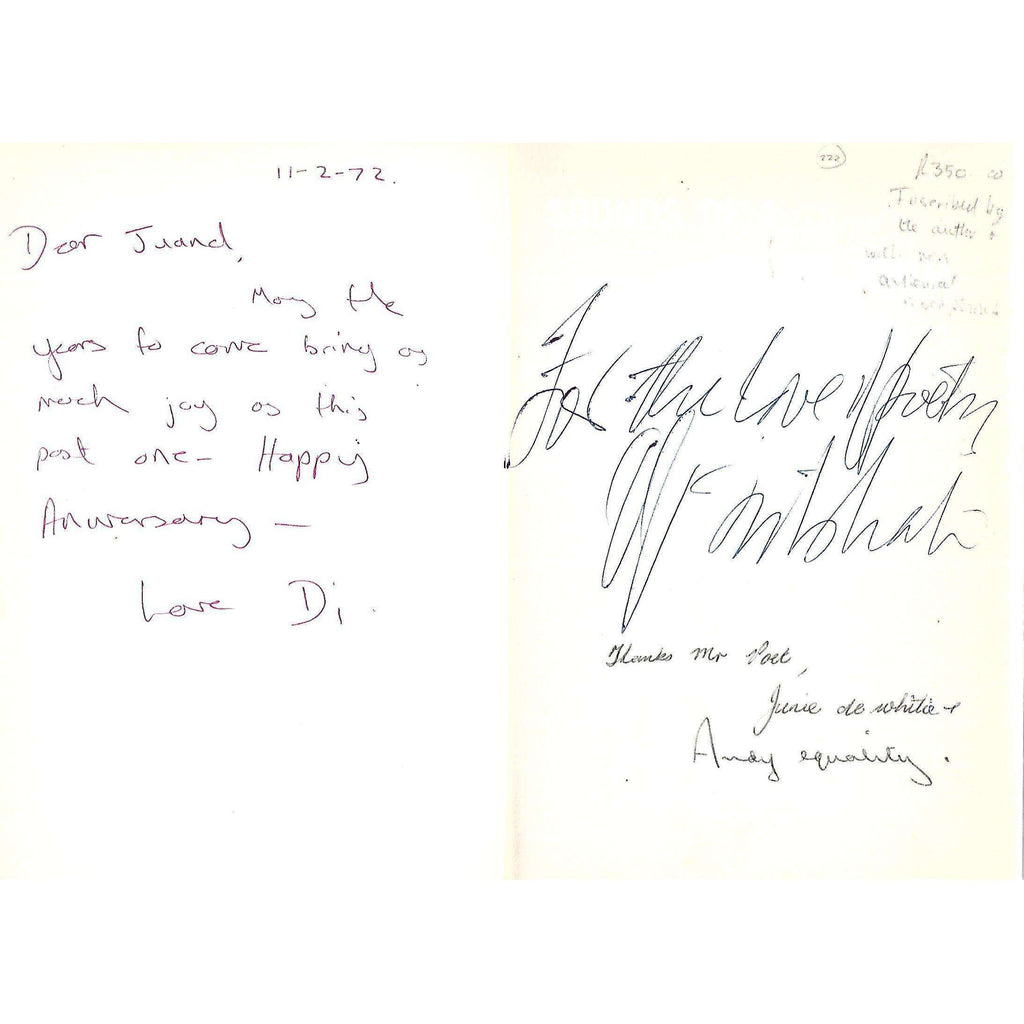 11-2-72.
Dear Juand,
May the
years to come bring as
much joy as this
past one- Happy
Anniversary —
Love Di.
222
R350.00
Inscribed by
the author +
with
For the love of poetry
Thanks Mr Poet,
Junie de whitie +
Andy equality.